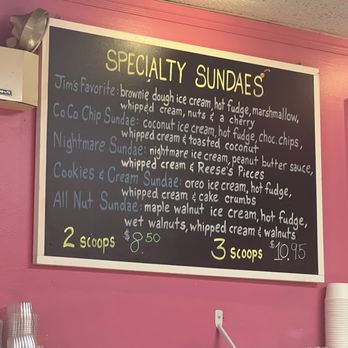 SPECIALTY SUNDAES
Jim's Favorite: brownie dough ice cream, hot fudge, marshmallow,
whipped cream, nuts & a cherry
CoCo Chip Sundae: coconut ice cream, hot fudge, choc. chips,
whipped cream & toasted coconut
Nightmare Sundae: nightmare ice cream, peanut butter sauce,
whipped cream & Reese's Pieces
Cookies & Cream Sundae: oreo ice cream, hot fudge,
whipped cream & cake crumbs
All Nut Sundae: maple walnut ice cream, hot fudge,
wet walnuts, whipped cream & walnuts
2 scoops $8.50 3 scoops $10.95